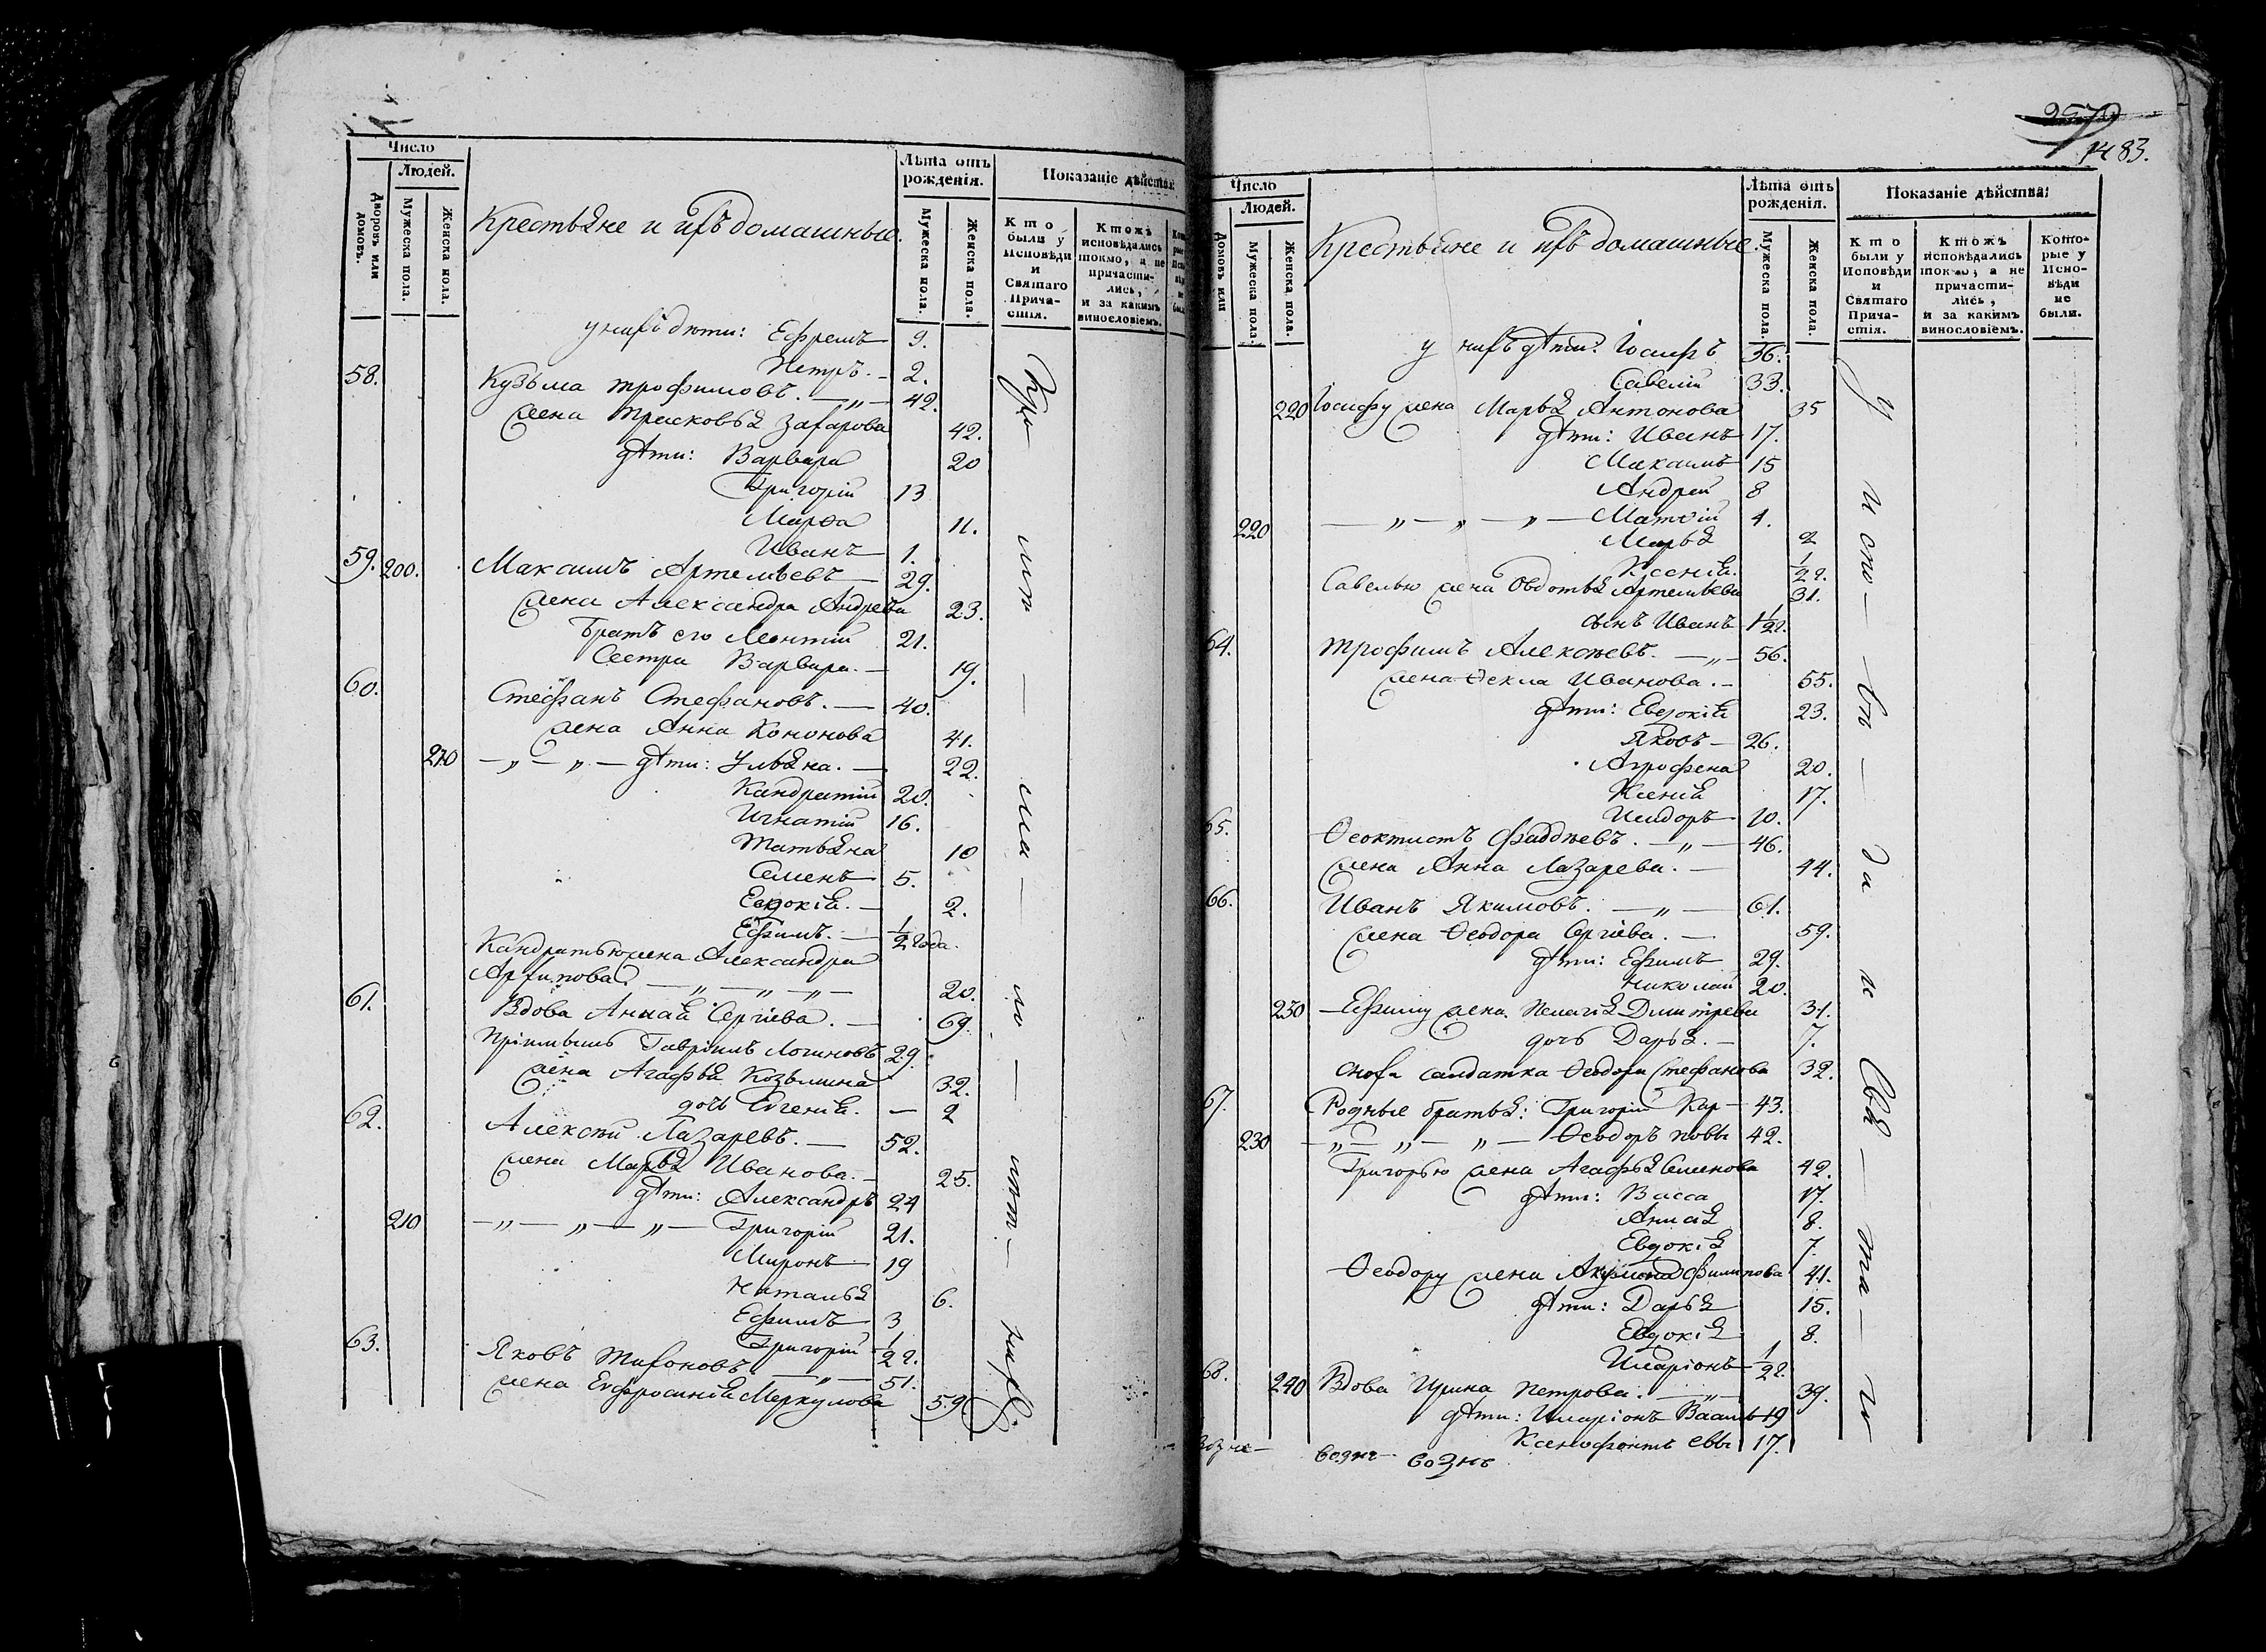 Число
Людей.
Дворовъ или домовъ.
Мужеска пола.
Женска пола.
Крестьяне и ихъ домашные.
Лѣта отъ рожденія.
Мужеска пола.
Женска пола.
Показаніе дѣйства:
Кто были у Исповѣди и Святаго Прича-стія.
Ктожъ исповѣдались токмо, а не причасти-лись, и за какимъ винословіемъ.
у нихъ дѣти: Ефремъ 9.
Петръ. - 2.
58. Кузьма Трофимовъ. — „ — 42.
жена Прасковья Захарова 42.
дѣти: Варвара 20
Григорій 13
Марѳа 11.
Иванъ 1.
59. 200. Максимъ Артемьевъ — 29.
жена Александра Андреева 23.
братъ его Леонтій 21.
Сестра Варвара. — 19.
60. Стефанъ Стефановъ. — 40.
жена Анна Кононова 41.
210 — „ — „ — дѣти: Ульяна. — 22.
Кандратій 20.
Игнатій 16.
Татьяна 10
Семенъ 5.
Евдокія. — 2.
Ефимъ. — 1/2 года.
Кандратью жена Александра
Архипова. — „ — „ — „ — 20.
61. Вдова Анна Сергіева. — 69.
Пріимышъ Гавріилъ Логиновъ 29.
жена Агафья Козьмина 32.
дочь Евгенія. — 2
62. Алексѣй Лазаревъ. — 52.
жена Марья Иванова. — 25.
дѣти: Александръ 24
210 — „ — „ — „ — Григорій 21.
Миронъ 19
Наталья 6.
Ефимъ 3
Григорій 1/2 г.
63. Яковъ Тихоновъ — „ — 51.
жена Евфросинія Меркулова 59
1483.
Число
Людей.
Домовъ или
Мужеска пола.
Женска пола.
Крестьяне и ихъ домашные.
Лѣта отъ рожденія.
Мужеска пола.
Женска пола.
Показаніе дѣйства:
Кто были у Исповѣди и Святаго Прича-стія.
Ктожъ исповѣдались токмо, а не причасти-лись, и за какимъ винословіемъ.
Кото-рые у Испо-вѣди не были.
у нихъ дѣти: Іосифъ 36.
Савелій 33.
220 Іосифу жена Марья Антонова 35
дѣти: Иванъ 17.
Максимъ 15
Андрей 8
220 — „ — „ — „ — Матѳій 4.
Марья 2
Ксенія. 1/2 г.
Савелью жена Овдотья Артемьева 31.
сынъ Иванъ 1/2 г.
64. Трофимъ Алексѣевъ. — „ — 56.
жена Ѳекла Иванова. — 55.
дѣти: Евдокія 23.
Яковъ — 26.
Агрофена 20.
Ксенія 17.
Исидоръ 10.
65. Ѳеоктистъ Фаддѣевъ. — „ — 46.
жена Анна Лазарева. — 44.
66. Иванъ Якимовъ. — „ — 61.
жена Ѳеодора Сергіева. — 59.
дѣти: Ефимъ 29.
Николай 20.
230 — Ефиму жена Пелагія Димитрева 31.
дочь Дарья. — 7.
сноха салдатка Ѳеодора Стефанова 32.
67. Родные братья: Григорій Кар- 43.
230 — „ — „ — „ — Ѳеодоръ повы 42.
Григорью жена Агафья Семенова 42.
дѣти: Васса 17.
Анисія 8.
Евдокія 7.
Ѳеодору жена Акулина Филипова 41.
дѣти: Дарья 15.
Евдокія 8.
Иларіонъ 1/2 г.
68. 240 Вдова Ирина Петрова. — „ — 39.
дѣти: Иларіонъ Василь- 19
Ксенофонтъ евы 17.
у испо- вѣ- да и Свя- та- го